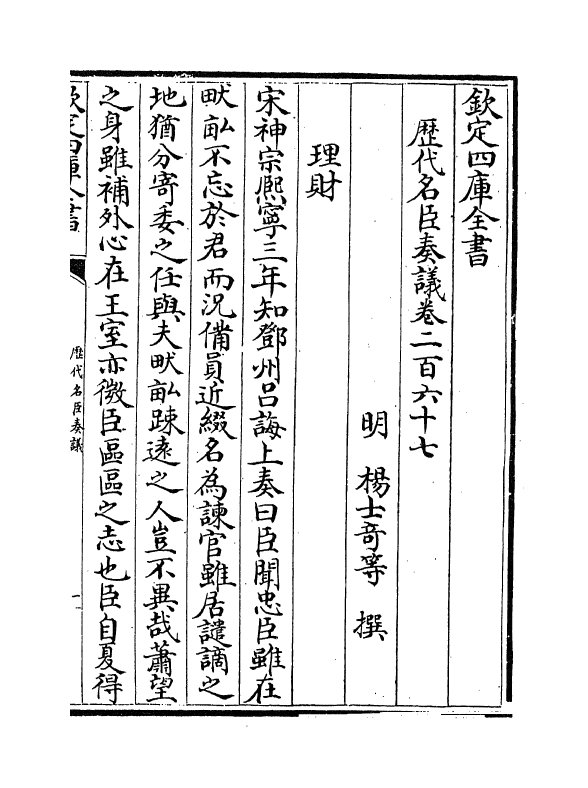 欽定四庫全書
歴代名臣奏議卷二百六十七
明 楊士竒等 撰
理財
宋神宗熈寧三年知鄧州吕誨上奏曰臣聞忠臣雖在
畎畝不忘於君而況備員近綴名為諫官雖居譴謫之
地猶分寄委之任與夫畎畝踈逺之人豈不異哉蕭望
之身雖補外心在王室亦微臣區區之志也臣自夏得
欽定四庫全書
歴代名臣奏議
一